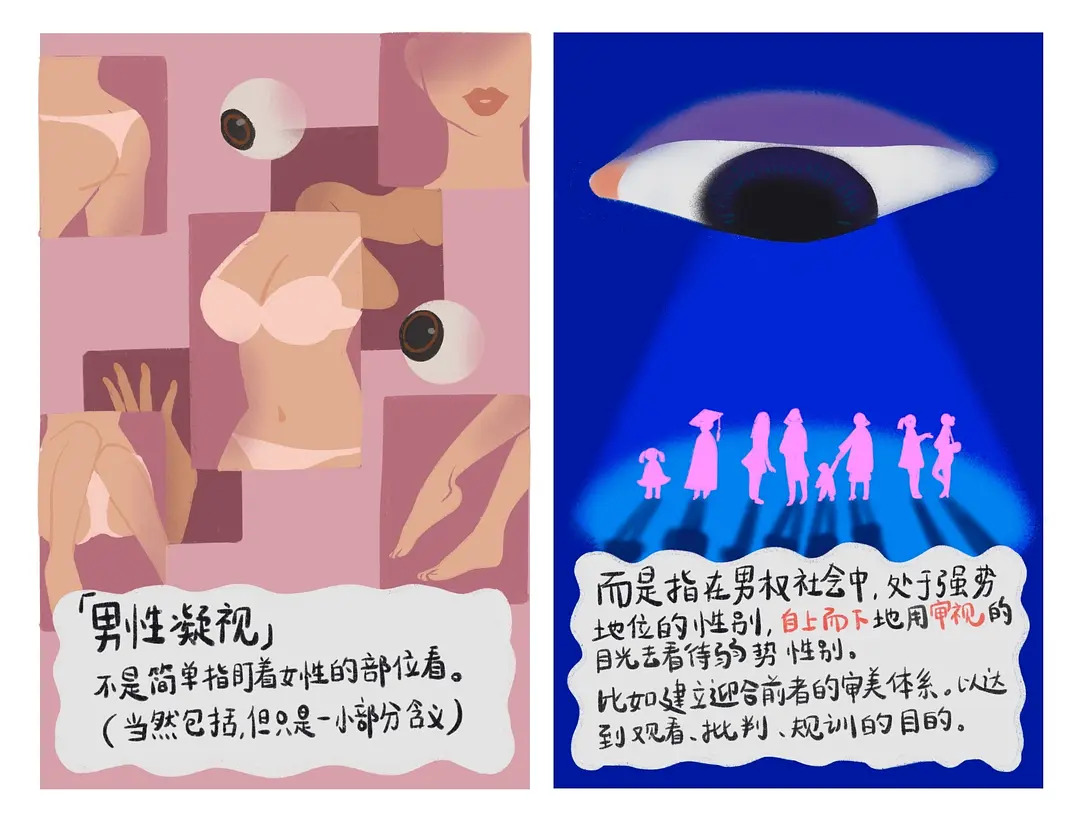 「男性凝视」
不是简单指盯着女性的部位看。
(当然包括,但只是一小部分含义)
而是指在男权社会中,处于强势
地位的性别,自上而下地用审视的
目光去看待弱势性别。
比如建立迎合前者的审美体系。以达
到观看、批判、规训的目的。